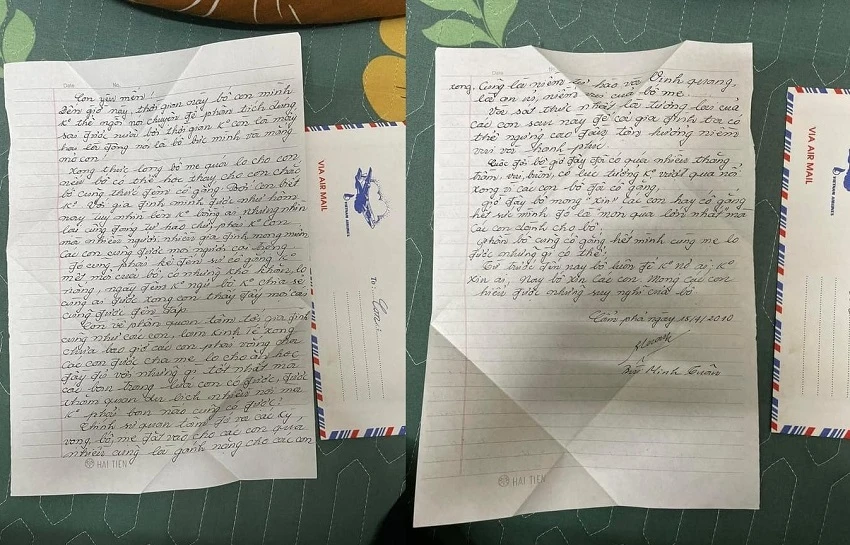 Date No.
Con yêu mến!
Đến giờ này, thời gian này bố con mình
K° thể ngồi nói chuyện để phân tích đúng
sai được nữa bởi thời gian K° còn là mấy
hay là động nói là bố bức mình và mắng
mỏ con!
Xong thực lòng bố mẹ quá lo cho con
nếu bố có thể học thay cho con chắc
bố cũng thức đêm cố gắng. Bởi con biết
K°. Với gia đình mình được như hôm
nay tuy nhìn lên K° bằng ai, nhưng nhìn
lại cũng đáng tự hào chứ, phải K° con
mà nhiều người nhiều gia đình mong muốn
Các con cũng được mọi người coi trọng
Đó cũng phải kể đến sự cố gắng K°
mệt mỏi của bố, có những khó khăn, lo
nặng, ngày đêm K° ngủ bố K° chia sẻ
cùng ai được xong con thấy đấy mọi cái
cũng được đền đáp
Còn về phần quan tâm tới gia đình
cũng như các con, làm kinh tế xong
chưa bao giờ các con phải vắng cha
các con được cha mẹ lo cho ăn học
đầy đủ với những gì tốt nhất mà
các bạn trong lứa con có được, được
thăm quan du lịch nhiều nơi mà
K° phải bạn nào cũng có được!
Chính sự quan tâm đó và các kỳ
vọng bố, mẹ đặt vào cho các con quá
nhiều cũng là gánh nặng cho các con
HAI TIEN
VIA AIR MAIL
VIETNAM AIRLINES
To: Con:
Date No.
xong. Cũng là niềm tự hào và Vinh quang,
là an ủi, niềm vui của bố mẹ.
Và sát thực nhất là tương lai của
các con sau này để cả gia đình ta có
thể ngửng cao đầu tận hưởng niềm
vui và hạnh phúc.
Cuộc đời bố giờ đây đã có quá nhiều thăng
trầm, vui buồn, có lúc tưởng K° vượt qua nổi
Xong vì các con bố đã cố gắng.
giờ đây bố mong "xin" các con hãy cố gắng
hết sức mình đó là món quà lớn nhất mà
các con dành cho bố.
Phần bố cũng cố gắng hết mình cùng mẹ lo
được những gì có thể!
Từ trước đến nay bố luôn để K° nể ai, K°
xin ai, Nay bố xin các con. Mong các con
hiểu được những suy nghĩ của bố.
Cẩm phả ngày 15/7/2010
Minh Tuấn
HAI TIEN
VIA AIR MAIL